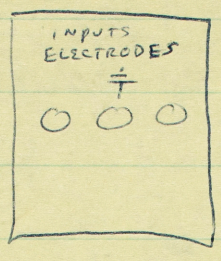 INPUTS
ELECTRODES